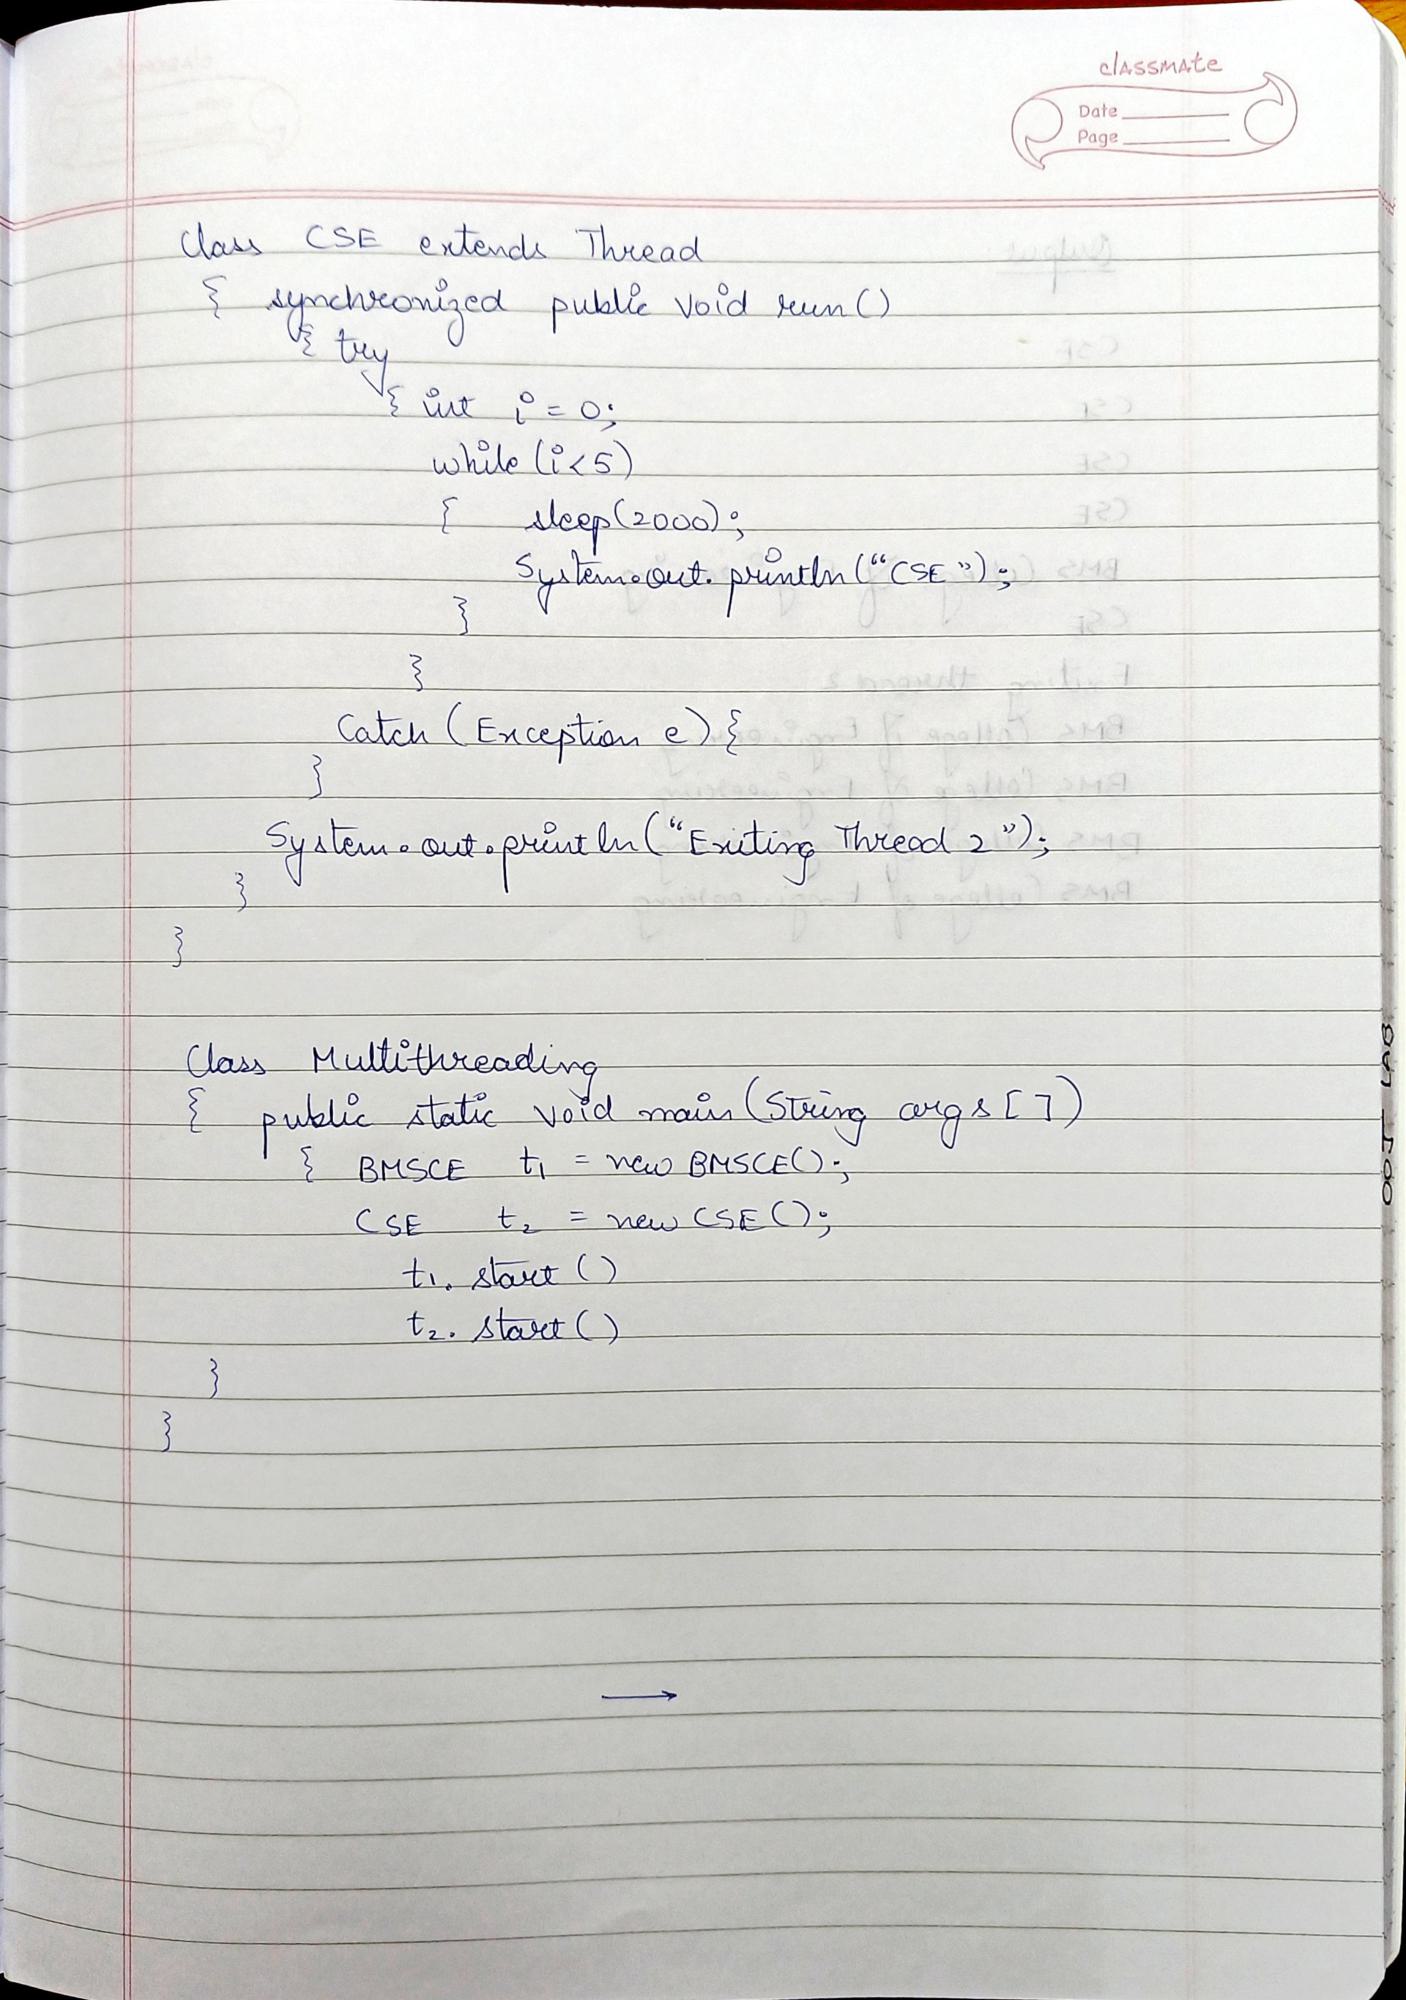 classmate
Date
Page
Class CSE extends Thread
{ synchronized public void run()
{ try
{ int i = 0;
while (i<5)
{ sleep(2000);
System.out.println("CSE");
}
}
Catch (Exception e) {
}
System.out.println("Exiting Thread 2");
}
}
Class Multithreading
{ public static void main (String args [])
{ BMSCE t1 = new BMSCE();
CSE t2 = new CSE();
t1. start ()
t2. start ()
}
}
→
OOJ LAB